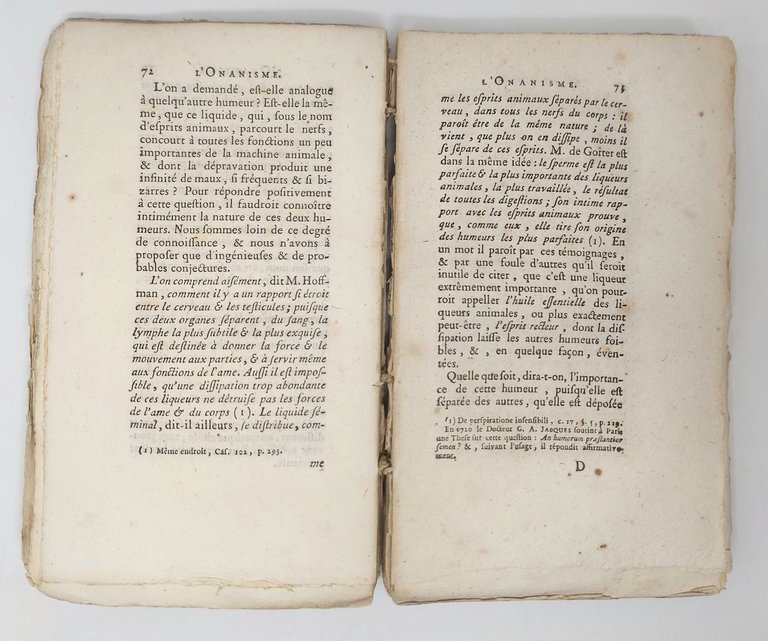 72 L'ONANISME.
L'on a demandé, est-elle analogue
à quelqu'autre humeur ? Est-elle la mê-
me, que ce liquide, qui, sous le nom
d'esprits animaux, parcourt le nerfs,
concourt à toutes les fonctions un peu
importantes de la machine animale,
& dont la dépravation produit une
infinité de maux, si fréquents & si bi-
zarres ? Pour répondre positivement
à cette question, il faudroit connoître
intimément la nature de ces deux hu-
meurs. Nous sommes loin de ce degré
de connoissance, & nous n'avons à
proposer que d'ingénieuses & de pro-
bables conjectures.
L'on comprend aisément, dit M. Hoff-
man, comment il y a un rapport si étroit
entre le cerveau & les testicules; puisque
ces deux organes séparent, du sang, la
lymphe la plus subtile & la plus exquise,
qui est destinée à donner la force & le
mouvement aux parties, & à servir même
aux fonctions de l'ame. Aussi il est impos-
sible, qu'une dissipation trop abondante
de ces liqueurs ne détruise pas les forces
de l'ame & du corps (1). Le liquide sé-
minal, dit-il ailleurs, se distribue, com-
(1) Même endroit, Cas. 102, p. 293.
me
L'ONANISME. 73
me les esprits animaux séparés par le cer-
veau, dans tous les nerfs du corps : il
paroît être de la même nature ; de là
vient, que plus on en dissipe, moins il
se sépare de ces esprits. M. de Gorter est
dans la même idée : le sperme est la plus
parfaite & la plus importante des liqueurs
animales, la plus travaillée, le résultat
de toutes les digestions ; son intime rap-
port avec les esprits animaux prouve,
que, comme eux, elle tire son origine
des humeurs les plus parfaites (1). En
un mot il paroît par ces témoignages,
& par une foule d'autres qu'il seroit
inutile de citer, que c'est une liqueur
extrêmement importante, qu'on pour-
roit appeller l'huile essentielle des li-
queurs animales, ou plus exactement
peut-être, l'esprit recteur, dont la dis-
sipation laisse les autres humeurs foi-
bles, &, en quelque façon, éven-
tées.
Quelle que soit, dira-t-on, l'importan-
ce de cette humeur, puisqu'elle est
séparée des autres, qu'elle est déposée
(1) De perspiratione insensibili, c. 17, §. 5, p. 219.
En 1720 le Docteur G. A. JACQUES soutint à Paris
une These sur cette question : An humorum præstantior
semen ? &, suivant l'usage, il répondit affirmative-
ment.
D